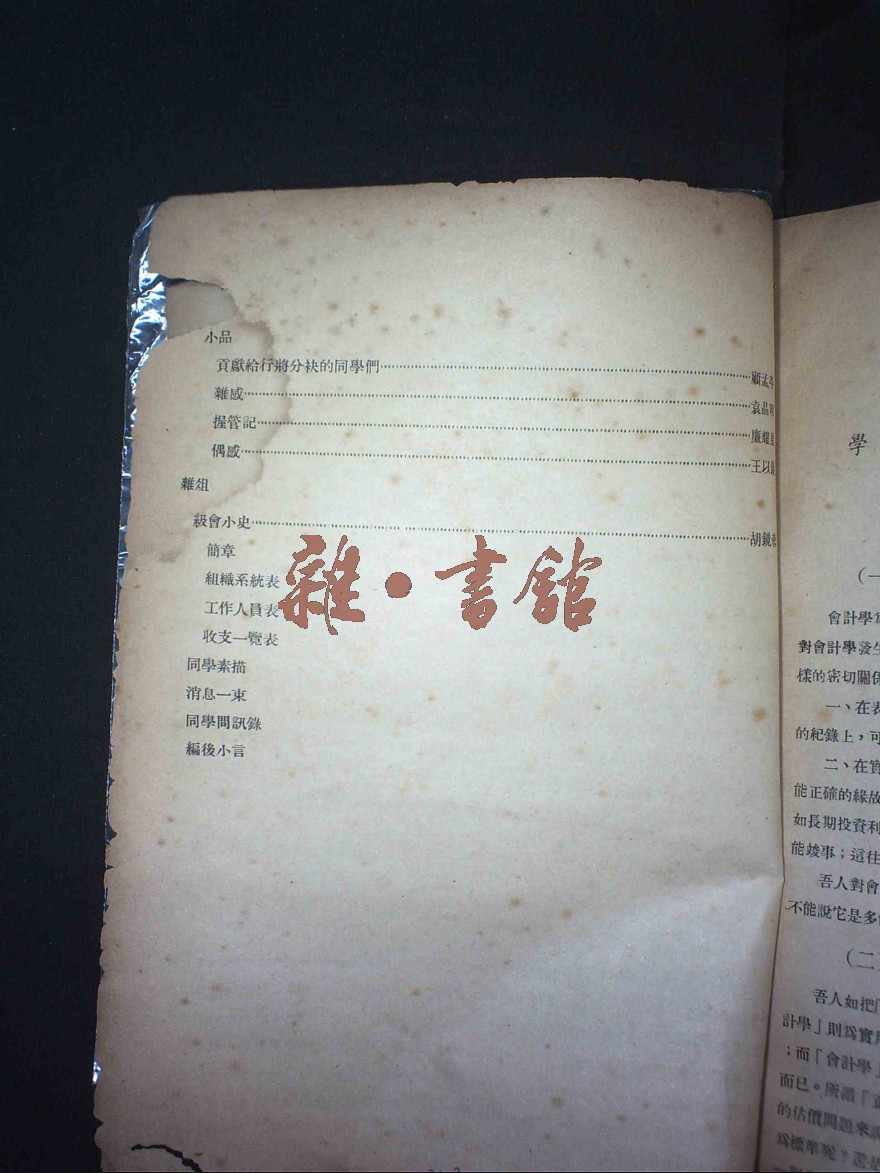 小品
貢獻給行將分袂的同學們……顧孟
雜感……袁晶
握管記……
偶感……王以
雜俎
級會小史……胡鏡
簡章
組織系統表
工作人員表
收支一覽表
同學素描
消息一束
同學問訊錄
編後小言
雜・書館
學
（一
會計學
對會計學發生
樣的密切關係
一、在表
的紀錄上，可
二、在
能正確的緣故
如長期投資利
能竣事；這往
吾人對會
不能說它是多
（二
吾人如把「
計學」則爲實
；而「會計學」
而已。所謂「
的估價問題來
爲標準呢？